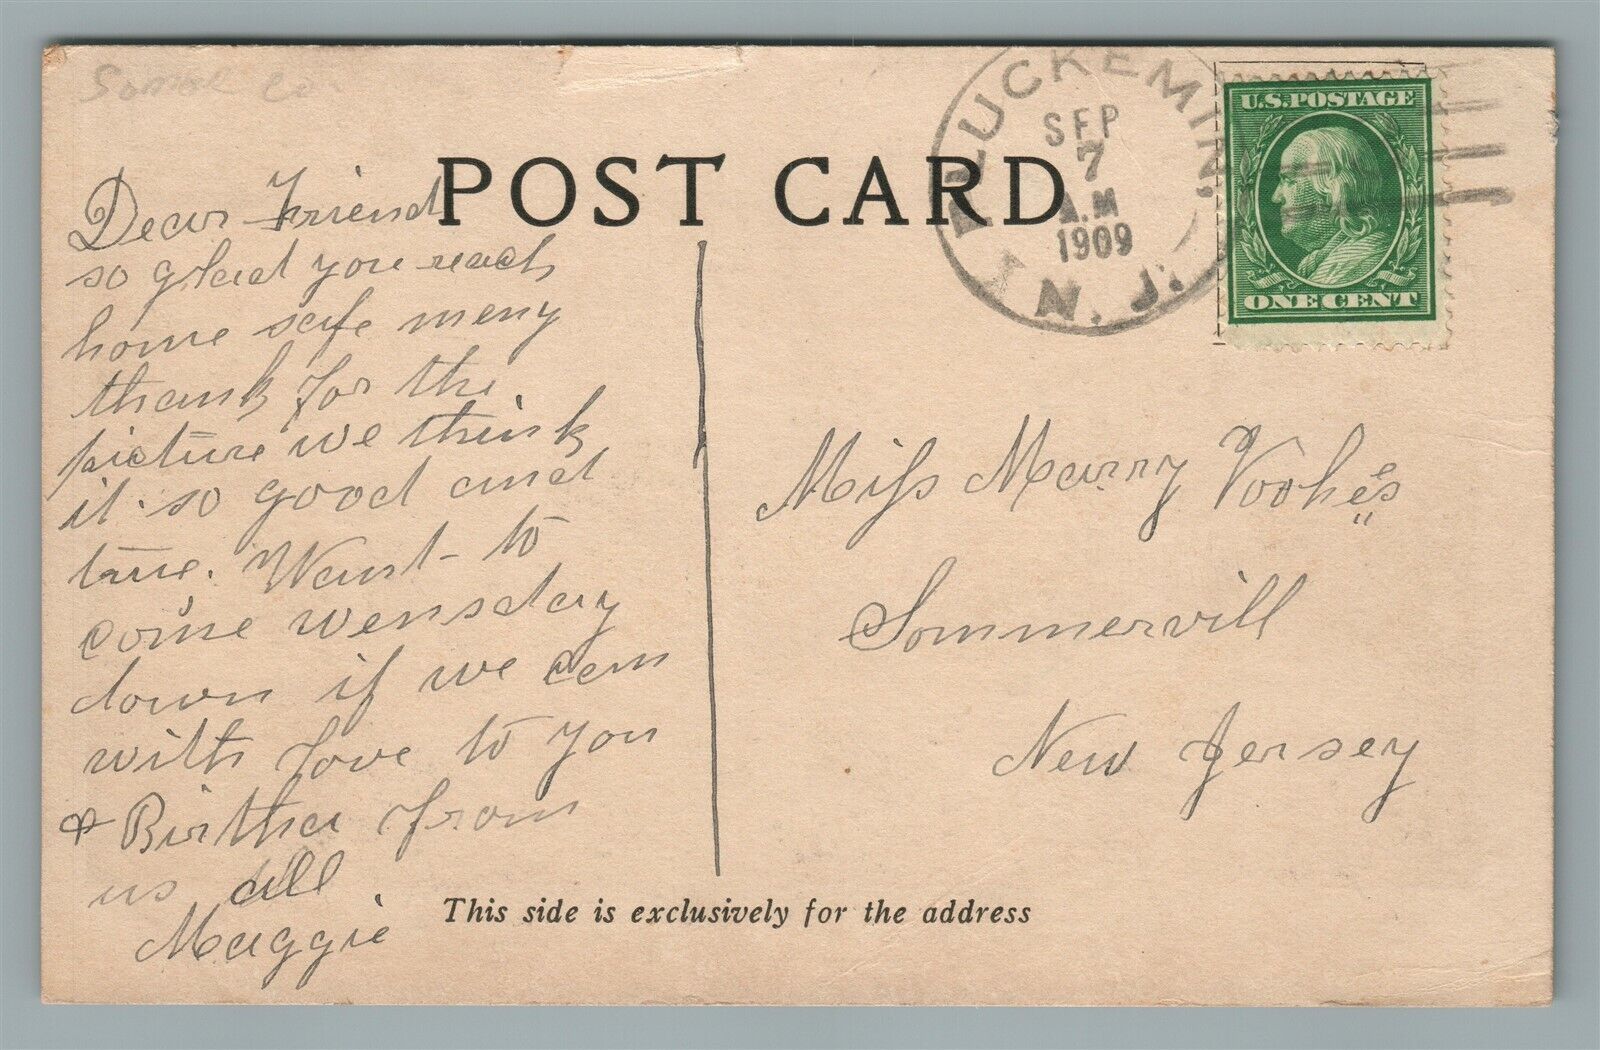 Somer Co.
POST CARD
PLUCKEMIN,
SEP
7
A.M
1909
N.J.
U.S.POSTAGE
ONE CENT
Dear Friend
so glad you reach
home safe meny
thank for the
picture we think
it so good and
true. Want to
come wensday
down if we can
with love to you
& Birtha from
us all
Maggie
Miss Marry Voohes
Sommervill
New Jersey
This side is exclusively for the address